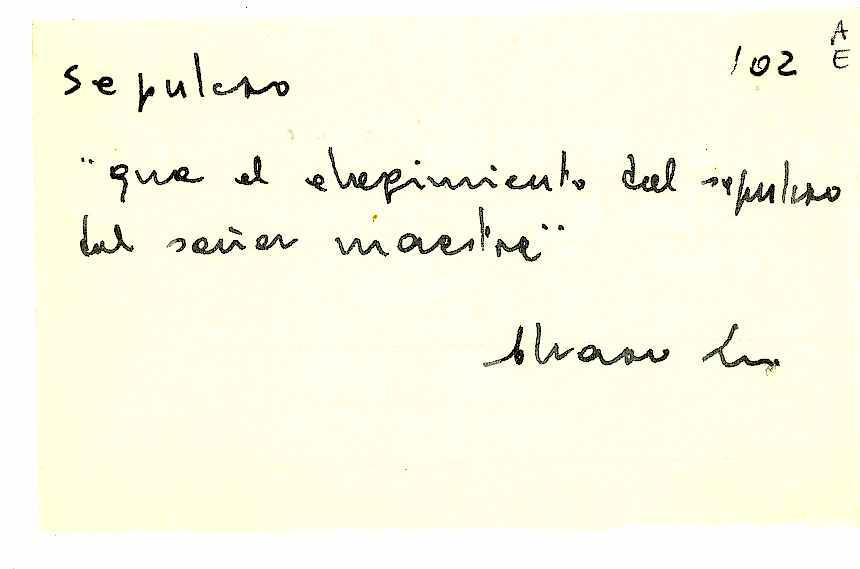 102 A
E
sepulcro
"que el elegimiento del sepulcro
del señor maestre"
Alvaro